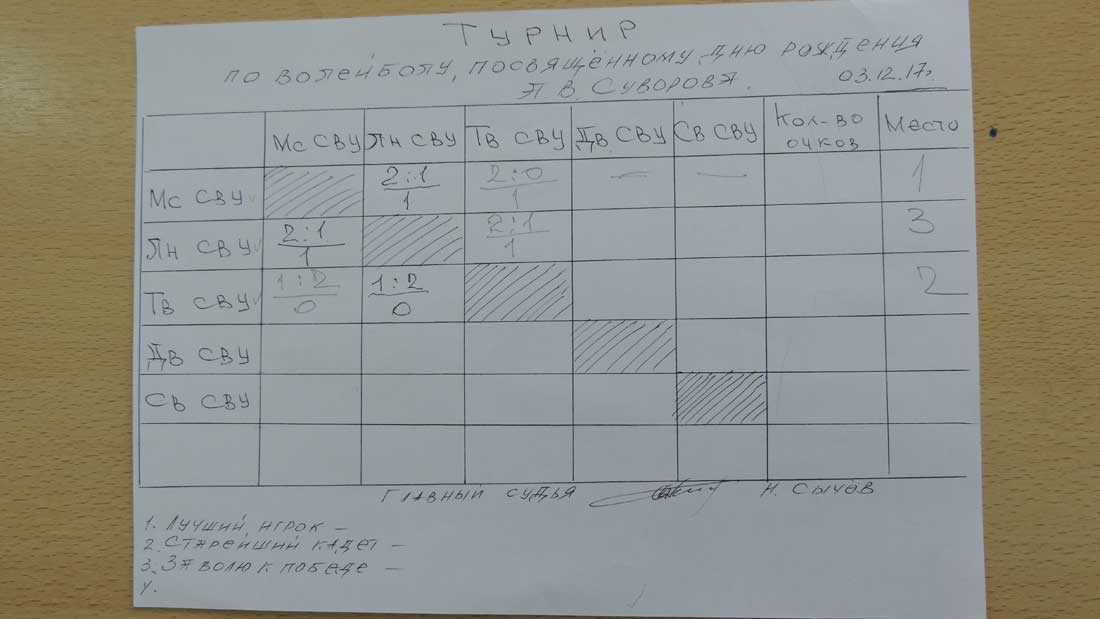 ТУРНИР
ПО ВОЛЕЙБОЛУ, ПОСВЯЩЁННОМУ ДНЮ РОЖДЕНИЯ
А В. СУВОРОВА. 03.12.17г.
Мс СВУ Лн СВУ Тв СВУ Дв СВУ Св СВУ Кол-во очков Место
Мс СВУ 2:1 2:0 — — 1
1 1
Лн СВУ 2:1 2:1 3
1 1
Тв СВУ 1:2 1:2 2
0 0
Дв СВУ
Св СВУ
ГЛАВНЫЙ СУДЬЯ Н. СЫЧЁВ
1. ЛУЧШИЙ ИГРОК —
2. СТАРЕЙШИЙ КАДЕТ —
3. ЗА ВОЛЮ К ПОБЕДЕ —
4.